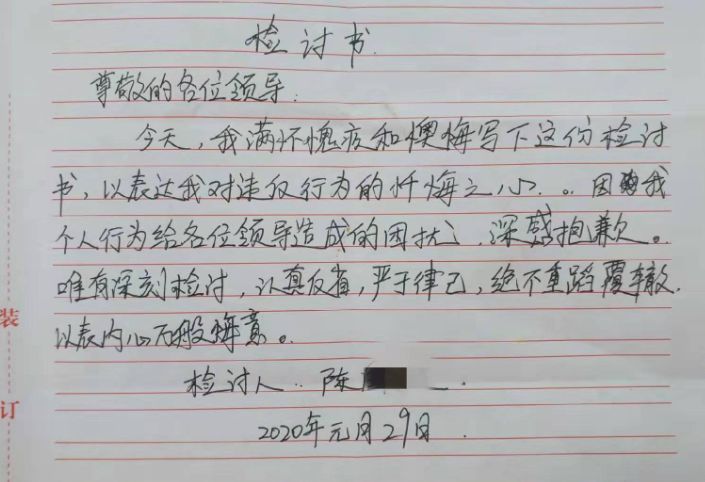 检讨书
尊敬的各位领导:
今天,我满怀愧疚和懊悔写下这份检讨
书,以表达我对违仅行为的忏悔之心.。因为我
个人行为给各位领导造成的困扰,深感抱歉。
唯有深刻检讨,认真反省,严于律己,绝不重蹈覆辙.
以表内心万般悔意。
检讨人:陈
2020年元月29日.
装
订